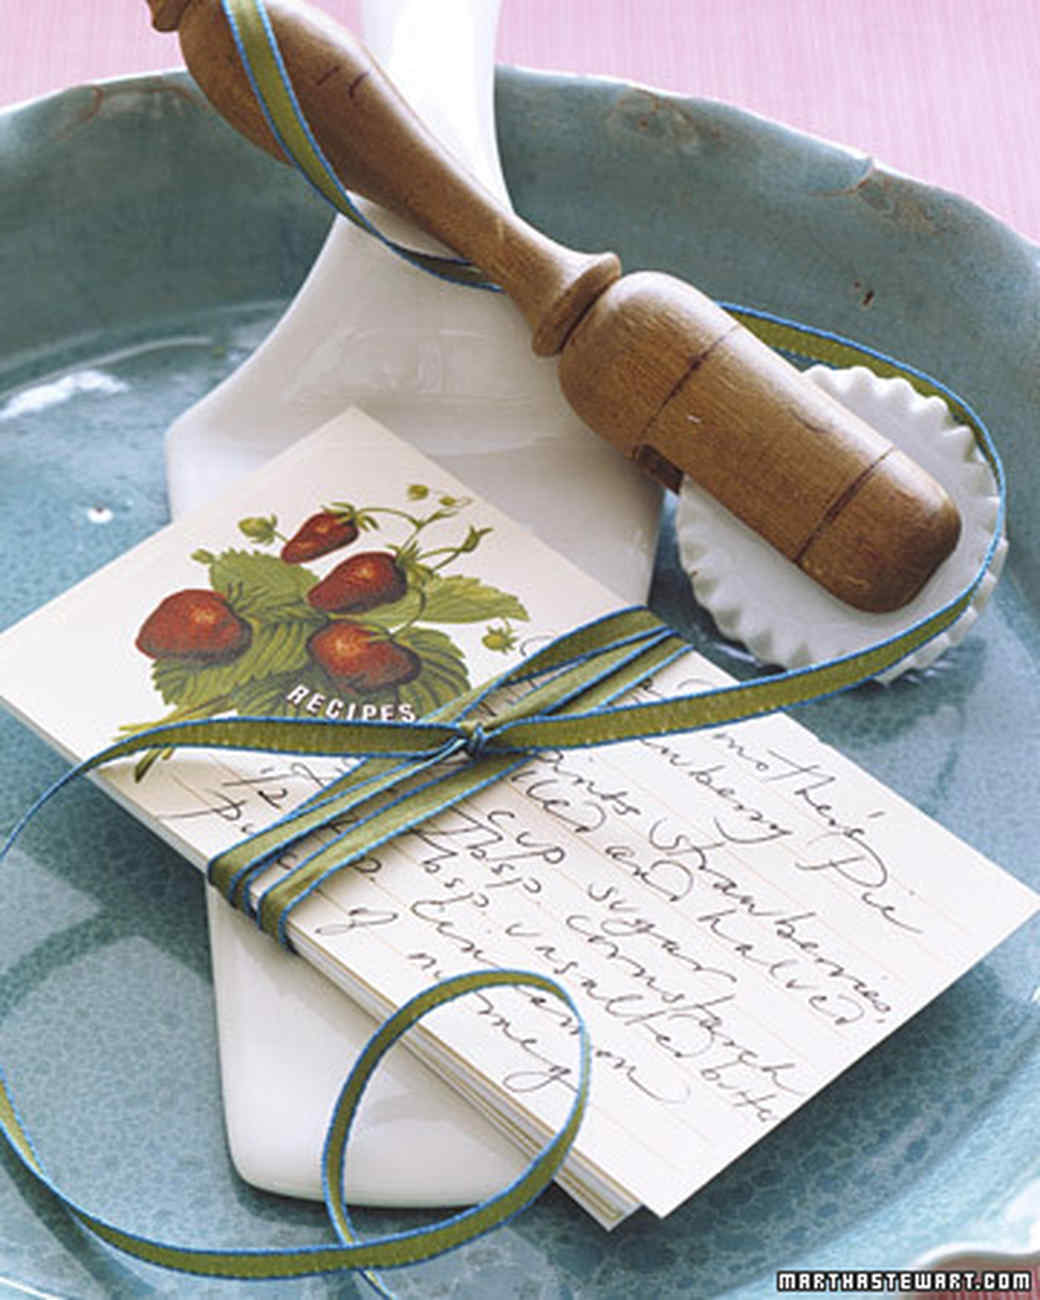 RECIPES
mother's
Strawberry Pie
pints strawberries,
and halved
cup sugar
Tbsp. cornstarch
Tbsp. unsalted butter
cinnamon
nutmeg
1/2
of
MARTHASTEWART.COM